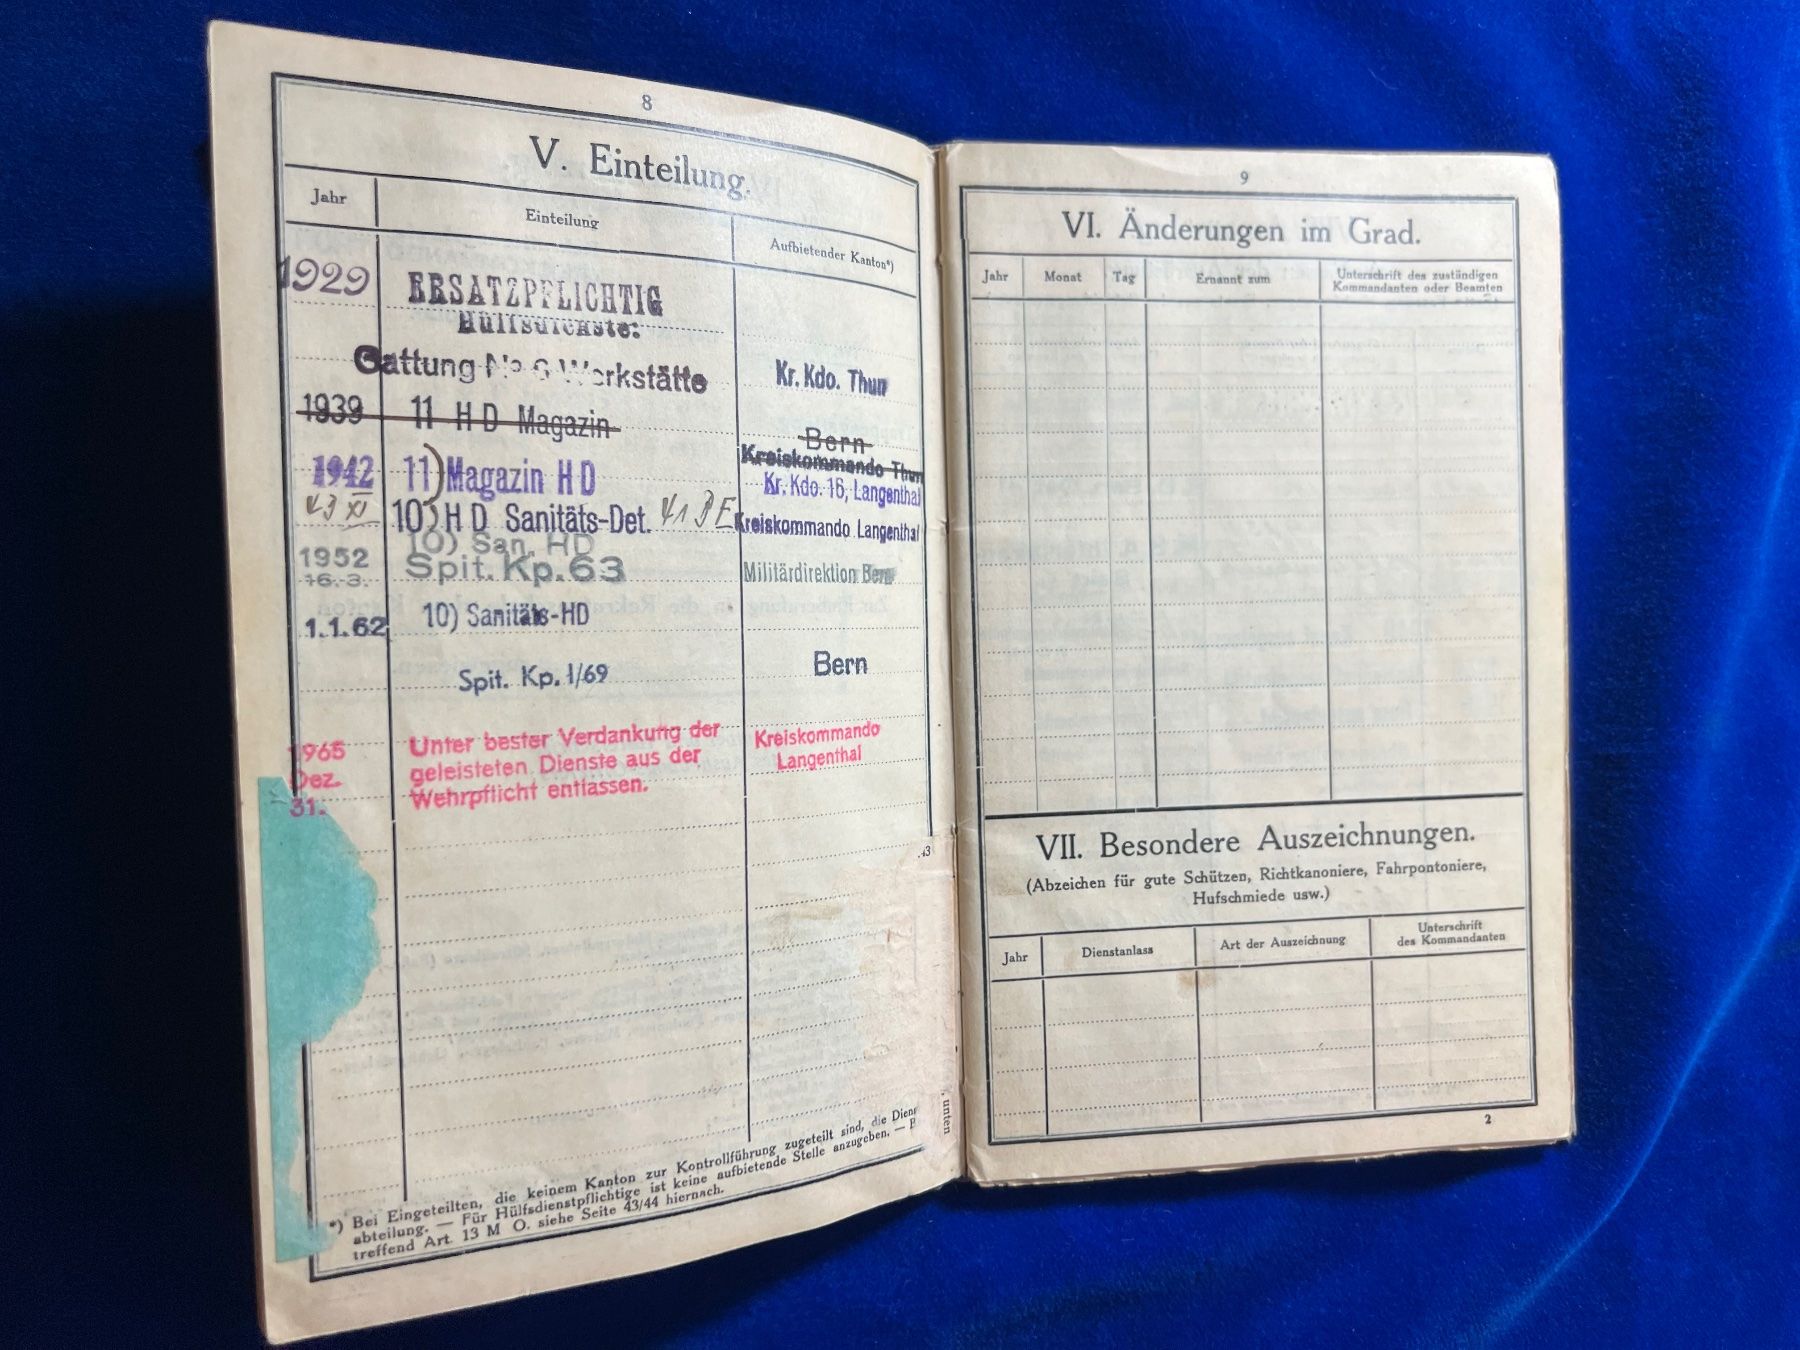 8
V. Einteilung.
Jahr Einteilung Aufbietender Kanton*)
1929 ERSATZPFLICHTIG
Hülfsdienste:
Gattung No 6 Werkstätte Kr. Kdo. Thun
1939 11 H D Magazin Bern
Kreiskommando Thun
1942 11) Magazin H D Kr. Kdo. 16, Langenthal
43 XI 10) H D Sanitäts-Det. 41 BE Kreiskommando Langenthal
10) San. HD
1952 Spit. Kp. 63 Militärdirektion Bern
16.3.
1.1.62 10) Sanitäts-HD
Spit. Kp. I/69 Bern
1965 Unter bester Verdankung der Kreiskommando
Dez. geleisteten Dienste aus der Langenthal
31. Wehrpflicht entlassen.
.43
*) Bei Eingeteilten, die keinem Kanton zur Kontrollführung zugeteilt sind, die Diens
abteilung. — Für Hülfsdienstpflichtige ist keine aufbietende Stelle anzugeben. — B
treffend Art. 13 M O. siehe Seite 43/44 hiernach.
unten
9
VI. Änderungen im Grad.
Jahr Monat Tag Ernannt zum Unterschrift des zuständigen
Kommandanten oder Beamten
VII. Besondere Auszeichnungen.
(Abzeichen für gute Schützen, Richtkanoniere, Fahrpontoniere,
Hufschmiede usw.)
Jahr Dienstanlass Art der Auszeichnung Unterschrift
des Kommandanten
2